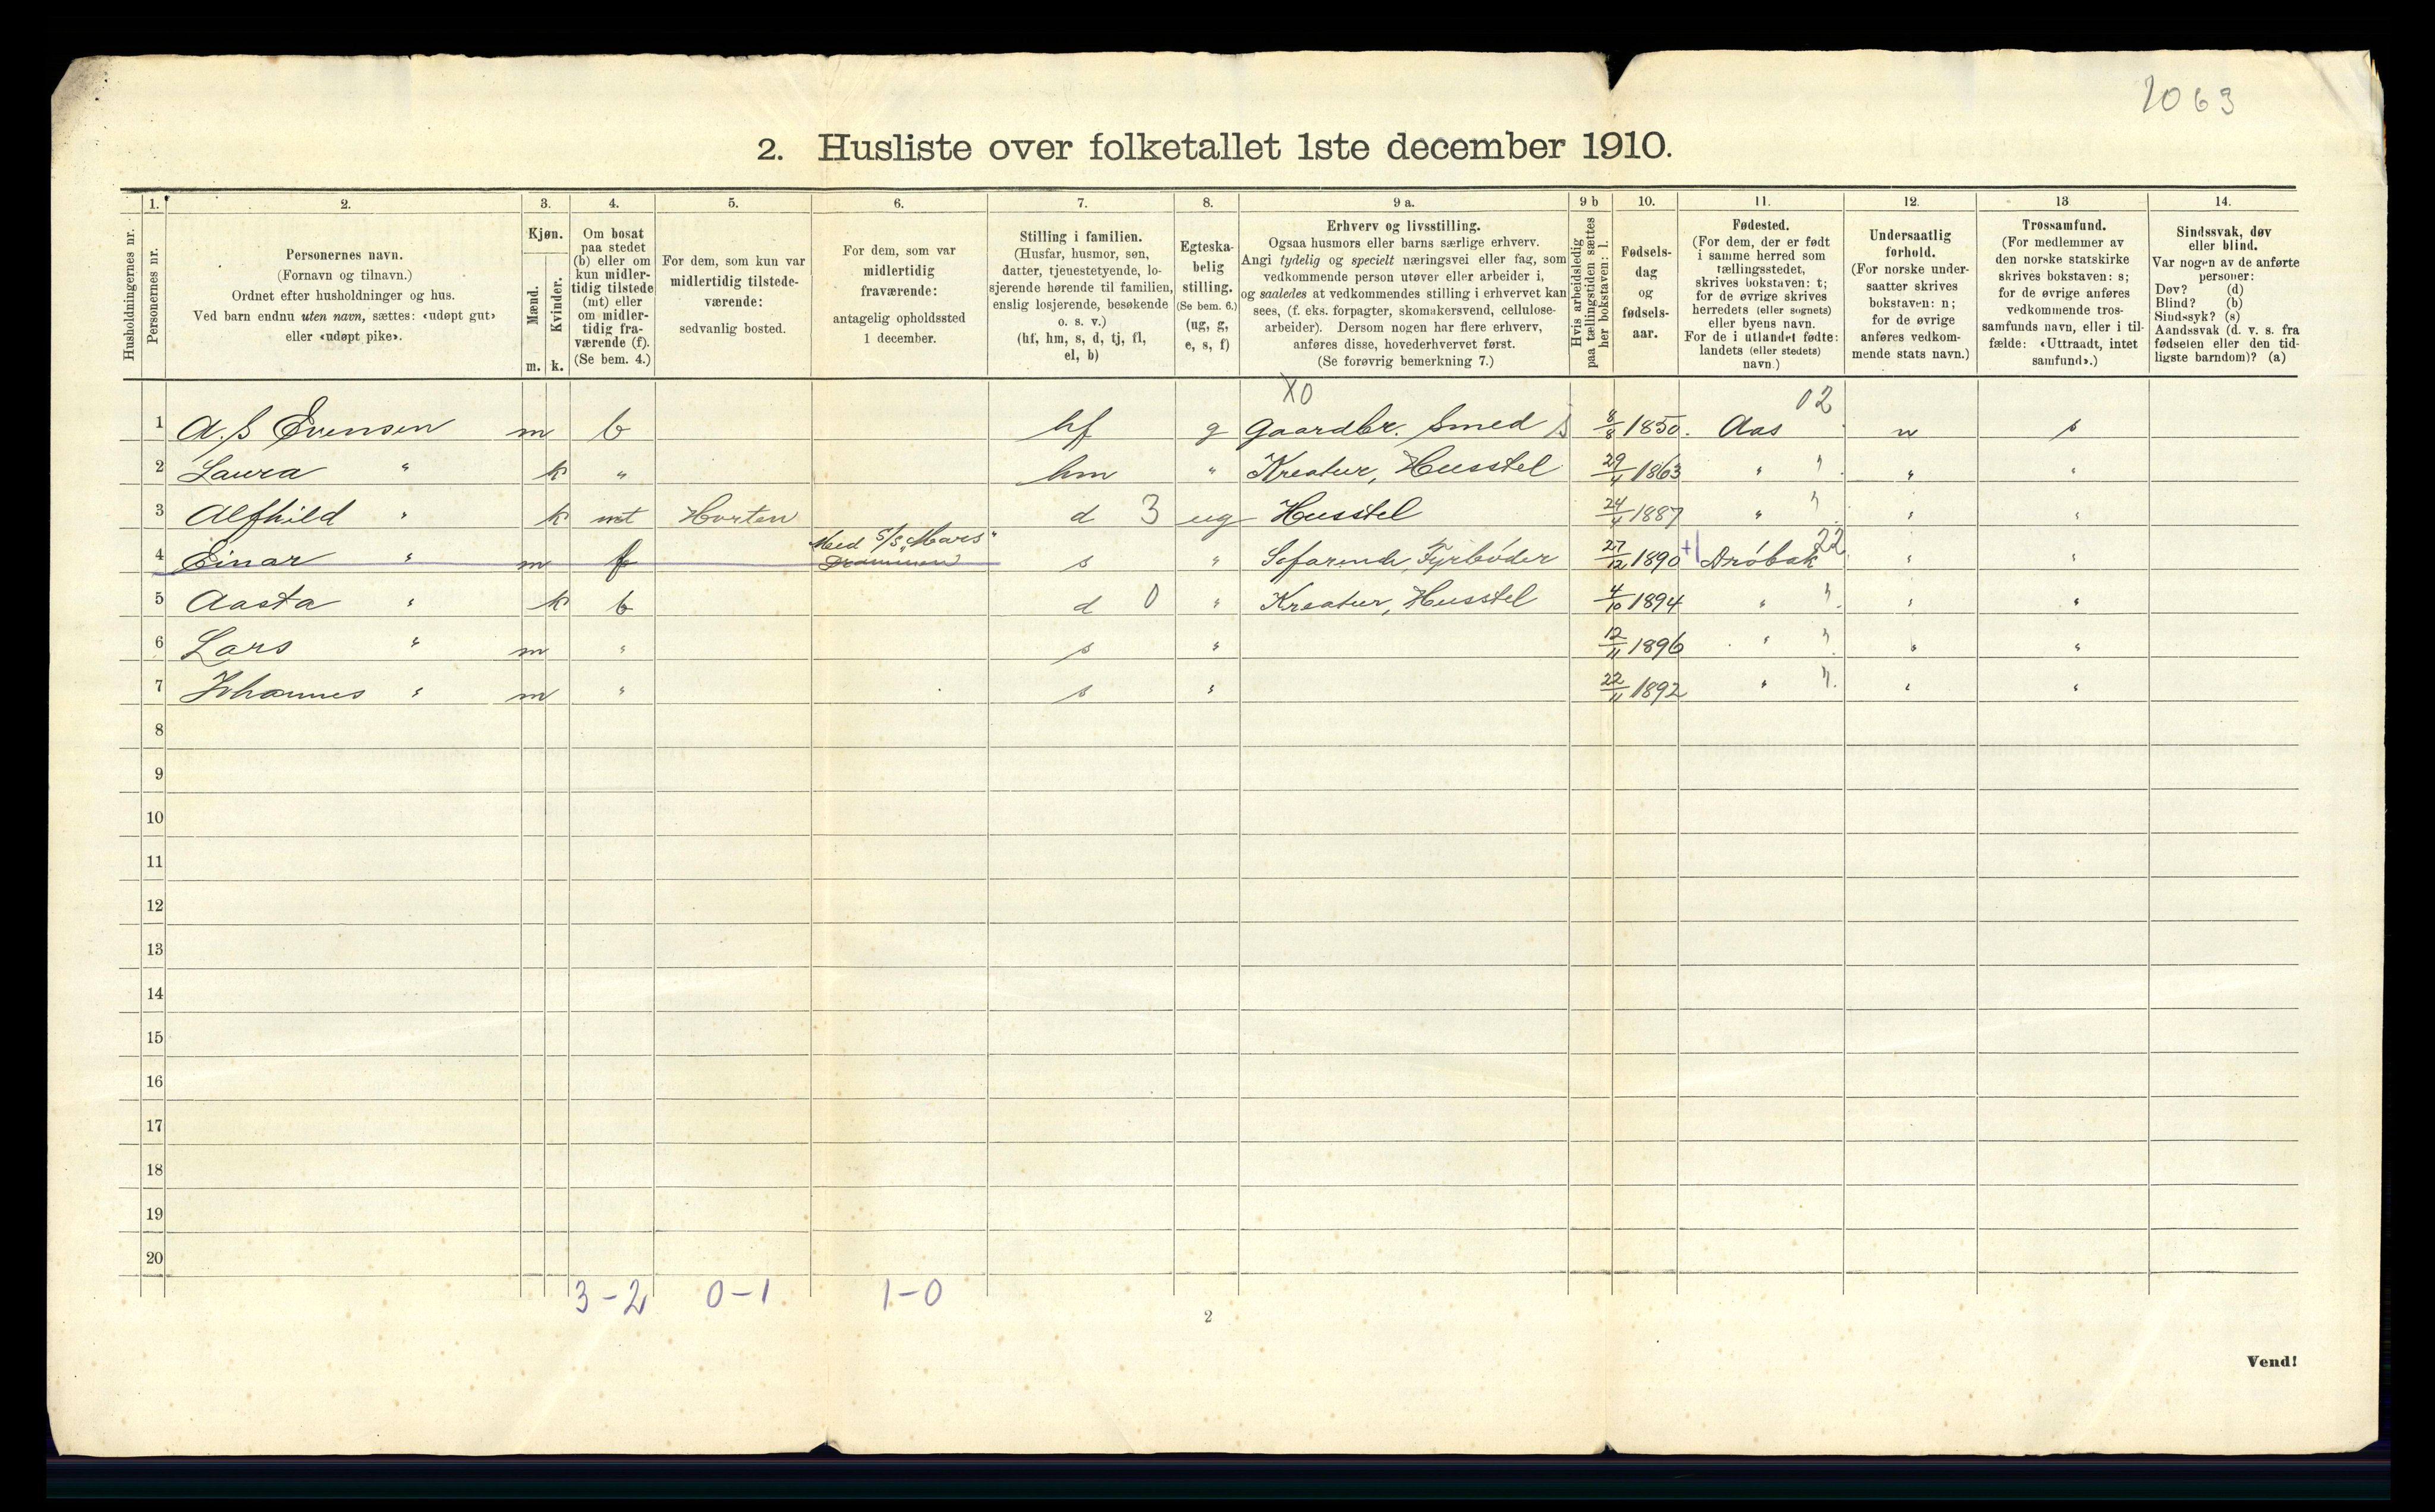 2063
2. Husliste over folketallet 1ste december 1910.
Husholdningernes nr.
1.
Personernes nr.
2.
Personernes navn.
(Fornavn og tilnavn.)
Ordnet efter husholdninger og hus.
Ved barn endnu uten navn, sættes: «udøpt gut»
eller «udøpt pike».
3.
Kjøn.
Mænd.
m.
Kvinder.
k.
4.
Om bosat
paa stedet
(b) eller om
kun midler-
tidig tilstede
(mt) eller
om midler-
tidig fra-
værende (f).
(Se bem. 4.)
5.
For dem, som kun var
midlertidig tilstede-
værende:
sedvanlig bosted.
6.
For dem, som var
midlertidig
fraværende:
antagelig opholdssted
1 december.
7.
Stilling i familien.
(Husfar, husmor, søn,
datter, tjenestetyende, lo-
sjerende hørende til familien,
enslig losjerende, besøkende
o. s. v.)
(hf, hm, s, d, tj, fl,
el, b)
8.
Egteska-
belig
stilling.
(Se bem. 6.)
(ug, g,
e, s, f)
9 a.
Erhverv og livsstilling.
Ogsaa husmors eller barns særlige erhverv.
Angi tydelig og specielt næringsvei eller fag, som
vedkommende person utøver eller arbeider i,
og saaledes at vedkommendes stilling i erhvervet kan
sees, (f. eks. forpagter, skomakersvend, cellulose-
arbeider). Dersom nogen har flere erhverv,
anføres disse, hovederhvervet først.
(Se forøvrig bemerkning 7.)
9 b
Hvis arbeidsledig
paa tællingstiden sættes
her bokstaven: l.
10.
Fødsels-
dag
og
fødsels-
aar.
11.
Fødested.
(For dem, der er født
i samme herred som
tællingsstedet,
skrives bokstaven: t;
for de øvrige skrives
herredets (eller sognets)
eller byens navn.
For de i utlandet fødte:
landets (eller stedets)
navn.)
12.
Undersaatlig
forhold.
(For norske under-
saatter skrives
bokstaven: n;
for de øvrige
anføres vedkom-
mende stats navn.)
13
Trossamfund.
(For medlemmer av
den norske statskirke
skrives bokstaven: s;
for de øvrige anføres
vedkommende tros-
samfunds navn, eller i til-
fælde: «Uttraadt, intet
samfund».)
14.
Sindssvak, døv
eller blind.
Var nogen av de anførte
personer:
Døv? (d)
Blind? (b)
Sindssyk? (s)
Aandssvak (d. v. s. fra
fødselen eller den tid-
ligste barndom)? (a)
X0 02
1 A. S Evensen m b hf g Gaardbr. Smed s 8/8 1850. Aas n s
2 Laura " k " hm " Kreatur, Husstel 29/4 1863 " " " "
3 Alfhild " k mt Horten d 3 ug Husstel 24/4 1887 " " " "
4 Einar " m f Med S/S "Mars" s " Sefarende, Fyrbøder 27/12 1890 +1 Drøbak 22 " "
5 Aasta " k b d 0 " Kreatur, Husstel 4/10 1894 " " " "
6 Lars " m " s " 12/11 1896 " " " "
7 Johannes " m " s " 22/11 1892 " " " "
8
9
10
11
12
13
14
15
16
17
18
19
20
3-2 0-1 1-0
2
Vend!